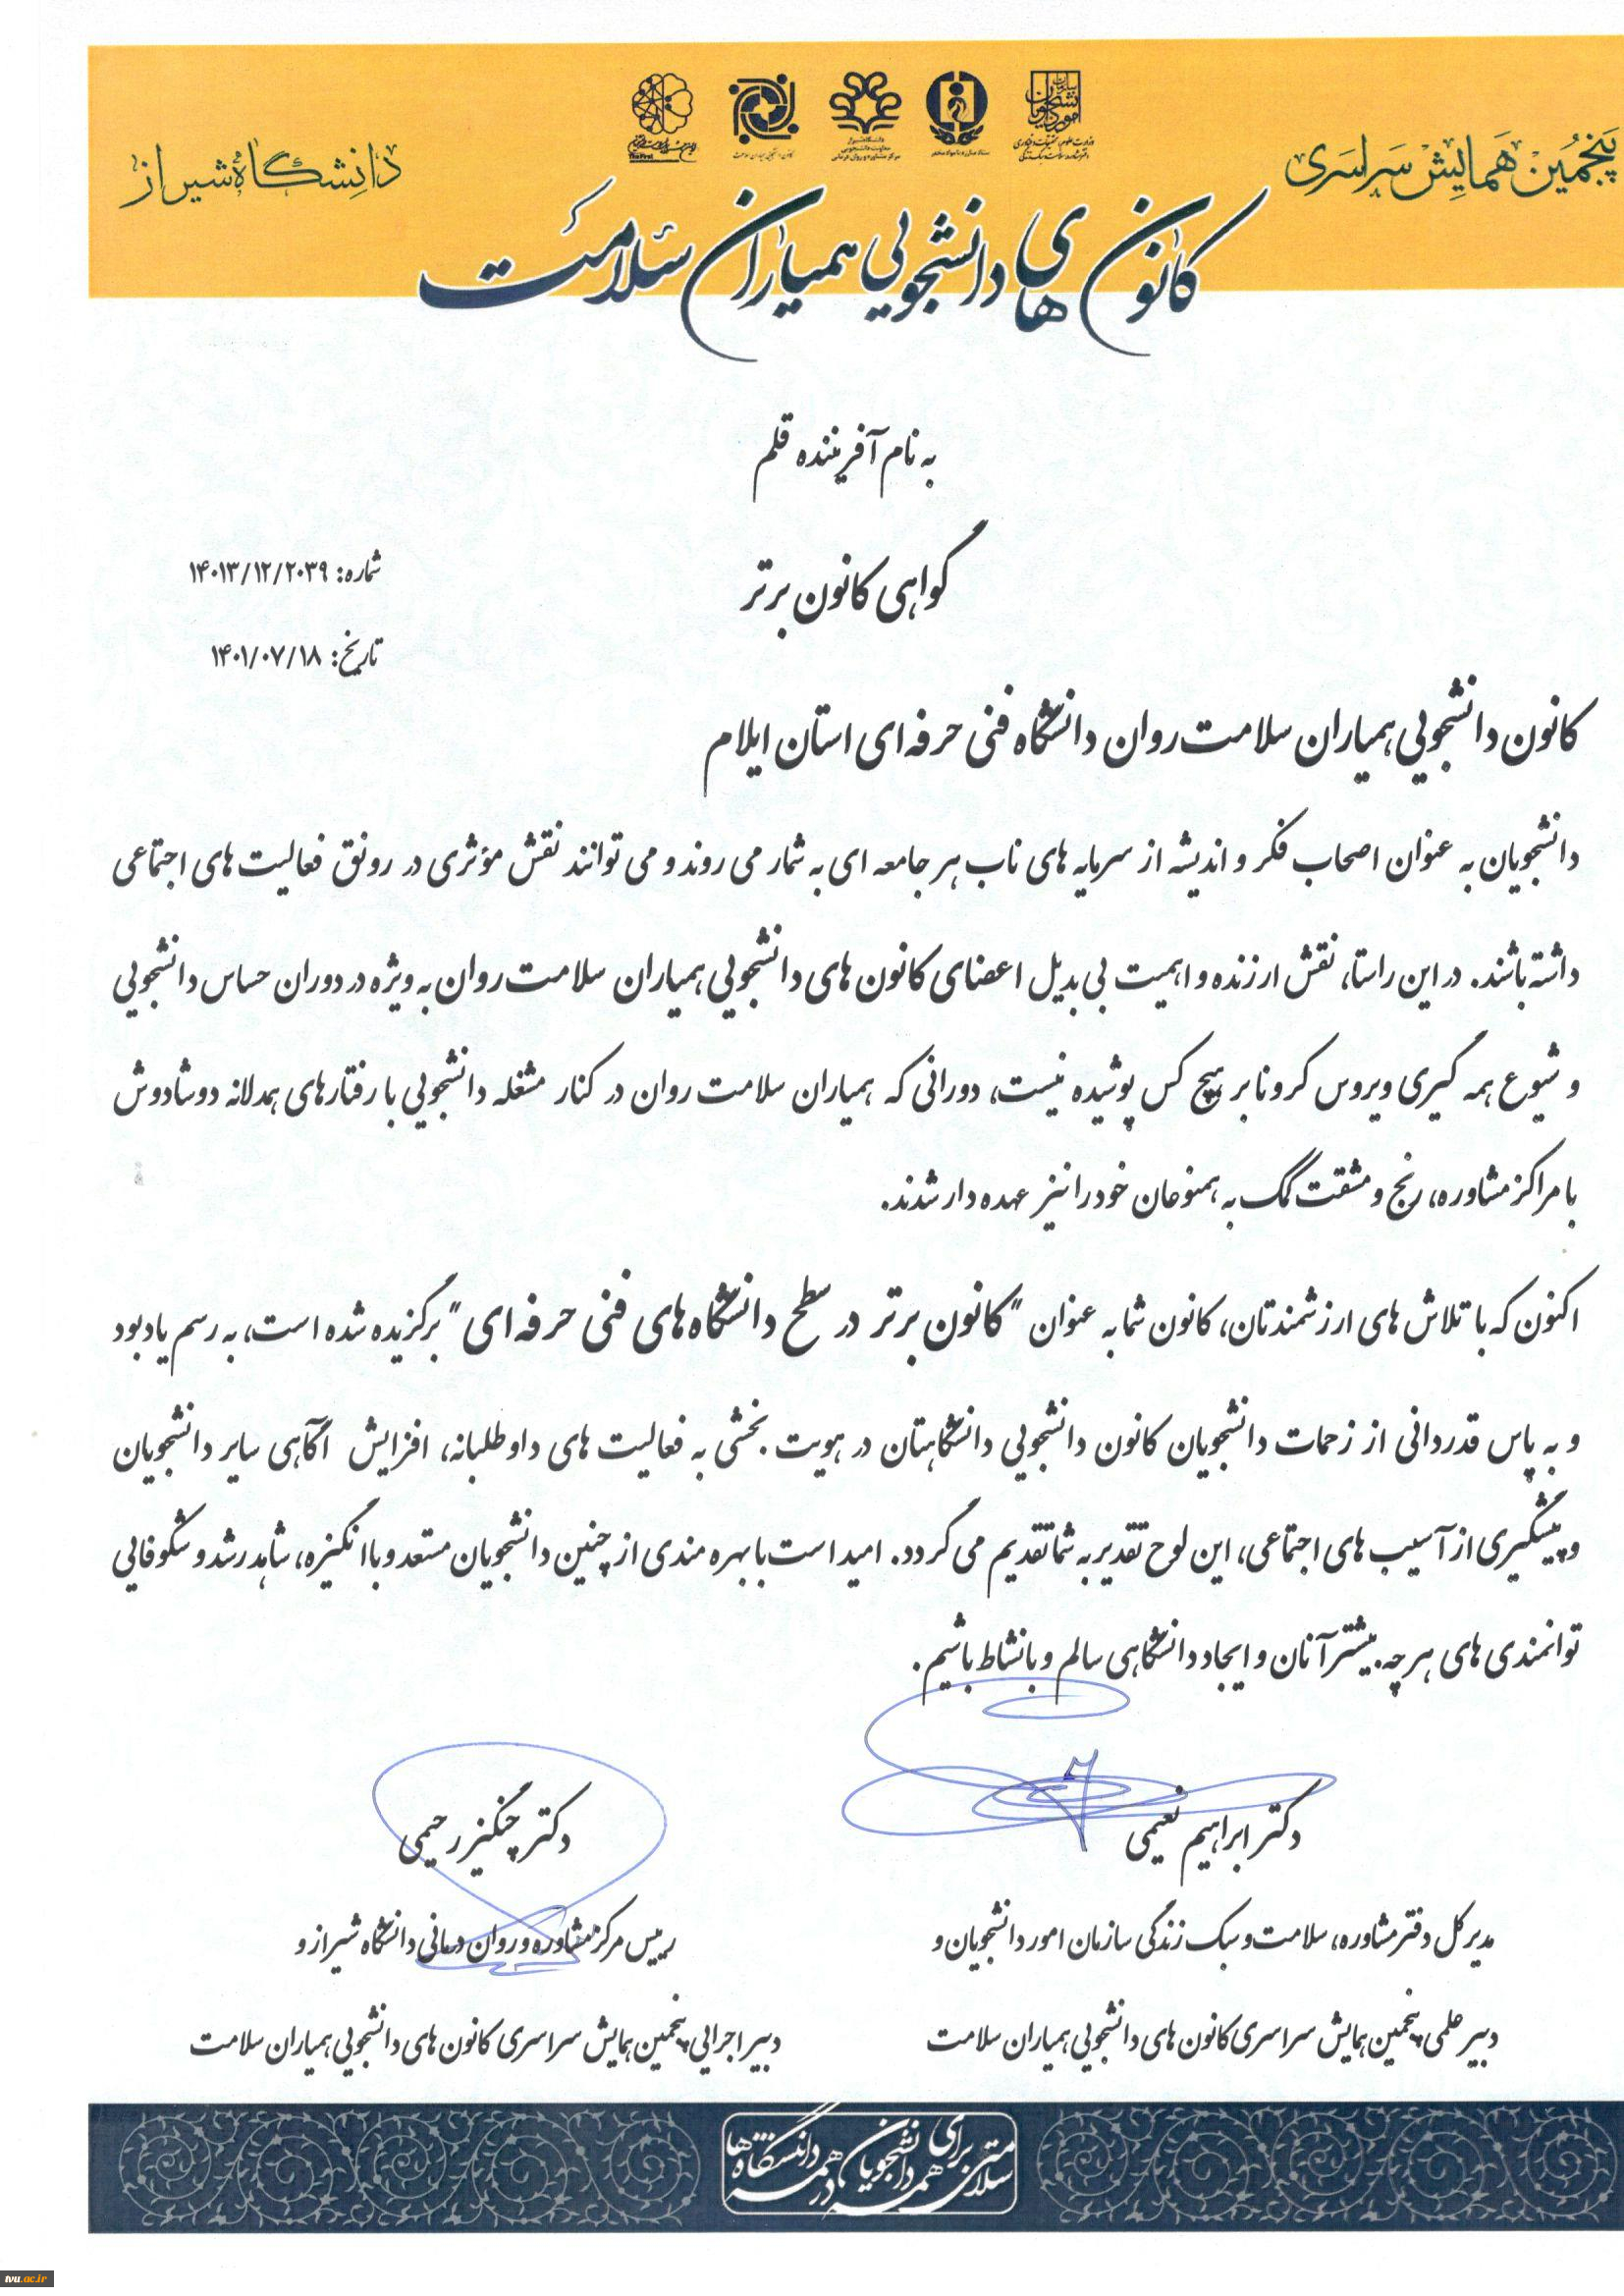 پنجمین همایش سراسری
دانشگاه شیراز
کانون های دانشجویی همیاران سلامت
به نام آفریننده قلم
گواهی کانون برتر
شماره: ۱۴۰۱۳/۱۲/۲۰۳۹
تاریخ: ۱۴۰۱/۰۷/۱۸
کانون دانشجویی همیاران سلامت روان دانشگاه فنی حرفه ای استان ایلام
دانشجویان به عنوان اصحاب فکر و اندیشه از سرمایه های ناب هر جامعه ای به شمار می روند و می توانند نقش مؤثری در رونق فعالیت های اجتماعی
داشته باشند. در این راستا، نقش ارزنده و اهمیت بی بدیل اعضای کانون های دانشجویی همیاران سلامت روان به ویژه در دوران حساس دانشجویی
و شیوع همه گیری ویروس کرونا بر هیچ کس پوشیده نیست، دورانی که همیاران سلامت روان در کنار مشغله دانشجویی با رفتارهای همدلانه دوشادوش
با مراکز مشاوره، رنج و مشقت کمک به همنوعان خود را نیز عهده دار شدند.
اکنون که با تلاش های ارزشمندتان، کانون شما به عنوان "کانون برتر در سطح دانشگاه های فنی حرفه ای" برگزیده شده است، به رسم یادبود
و به پاس قدردانی از زحمات دانشجویان کانون دانشجویی دانشگاهتان در هویت بخشی به فعالیت های داوطلبانه، افزایش آگاهی سایر دانشجویان
و پیشگیری از آسیب های اجتماعی، این لوح تقدیر به شما تقدیم می گردد. امید است با بهره مندی از چنین دانشجویان مستعد و با انگیزه، شاهد رشد و شکوفایی
توانمندی های هر چه بیشتر آنان و ایجاد دانشگاهی سالم و با نشاط باشیم.
دکتر ابراهیم نعیمی
مدیر کل دفتر مشاوره، سلامت و سبک زندگی سازمان امور دانشجویان و
دبیر علمی پنجمین همایش سراسری کانون های دانشجویی همیاران سلامت
دکتر چنگیز رحیمی
رییس مرکز مشاوره و روان درمانی دانشگاه شیراز و
دبیر اجرایی پنجمین همایش سراسری کانون های دانشجویی همیاران سلامت
سلامتی برای همه دانشجویان در همه دانشگاه ها
tvu.ac.ir